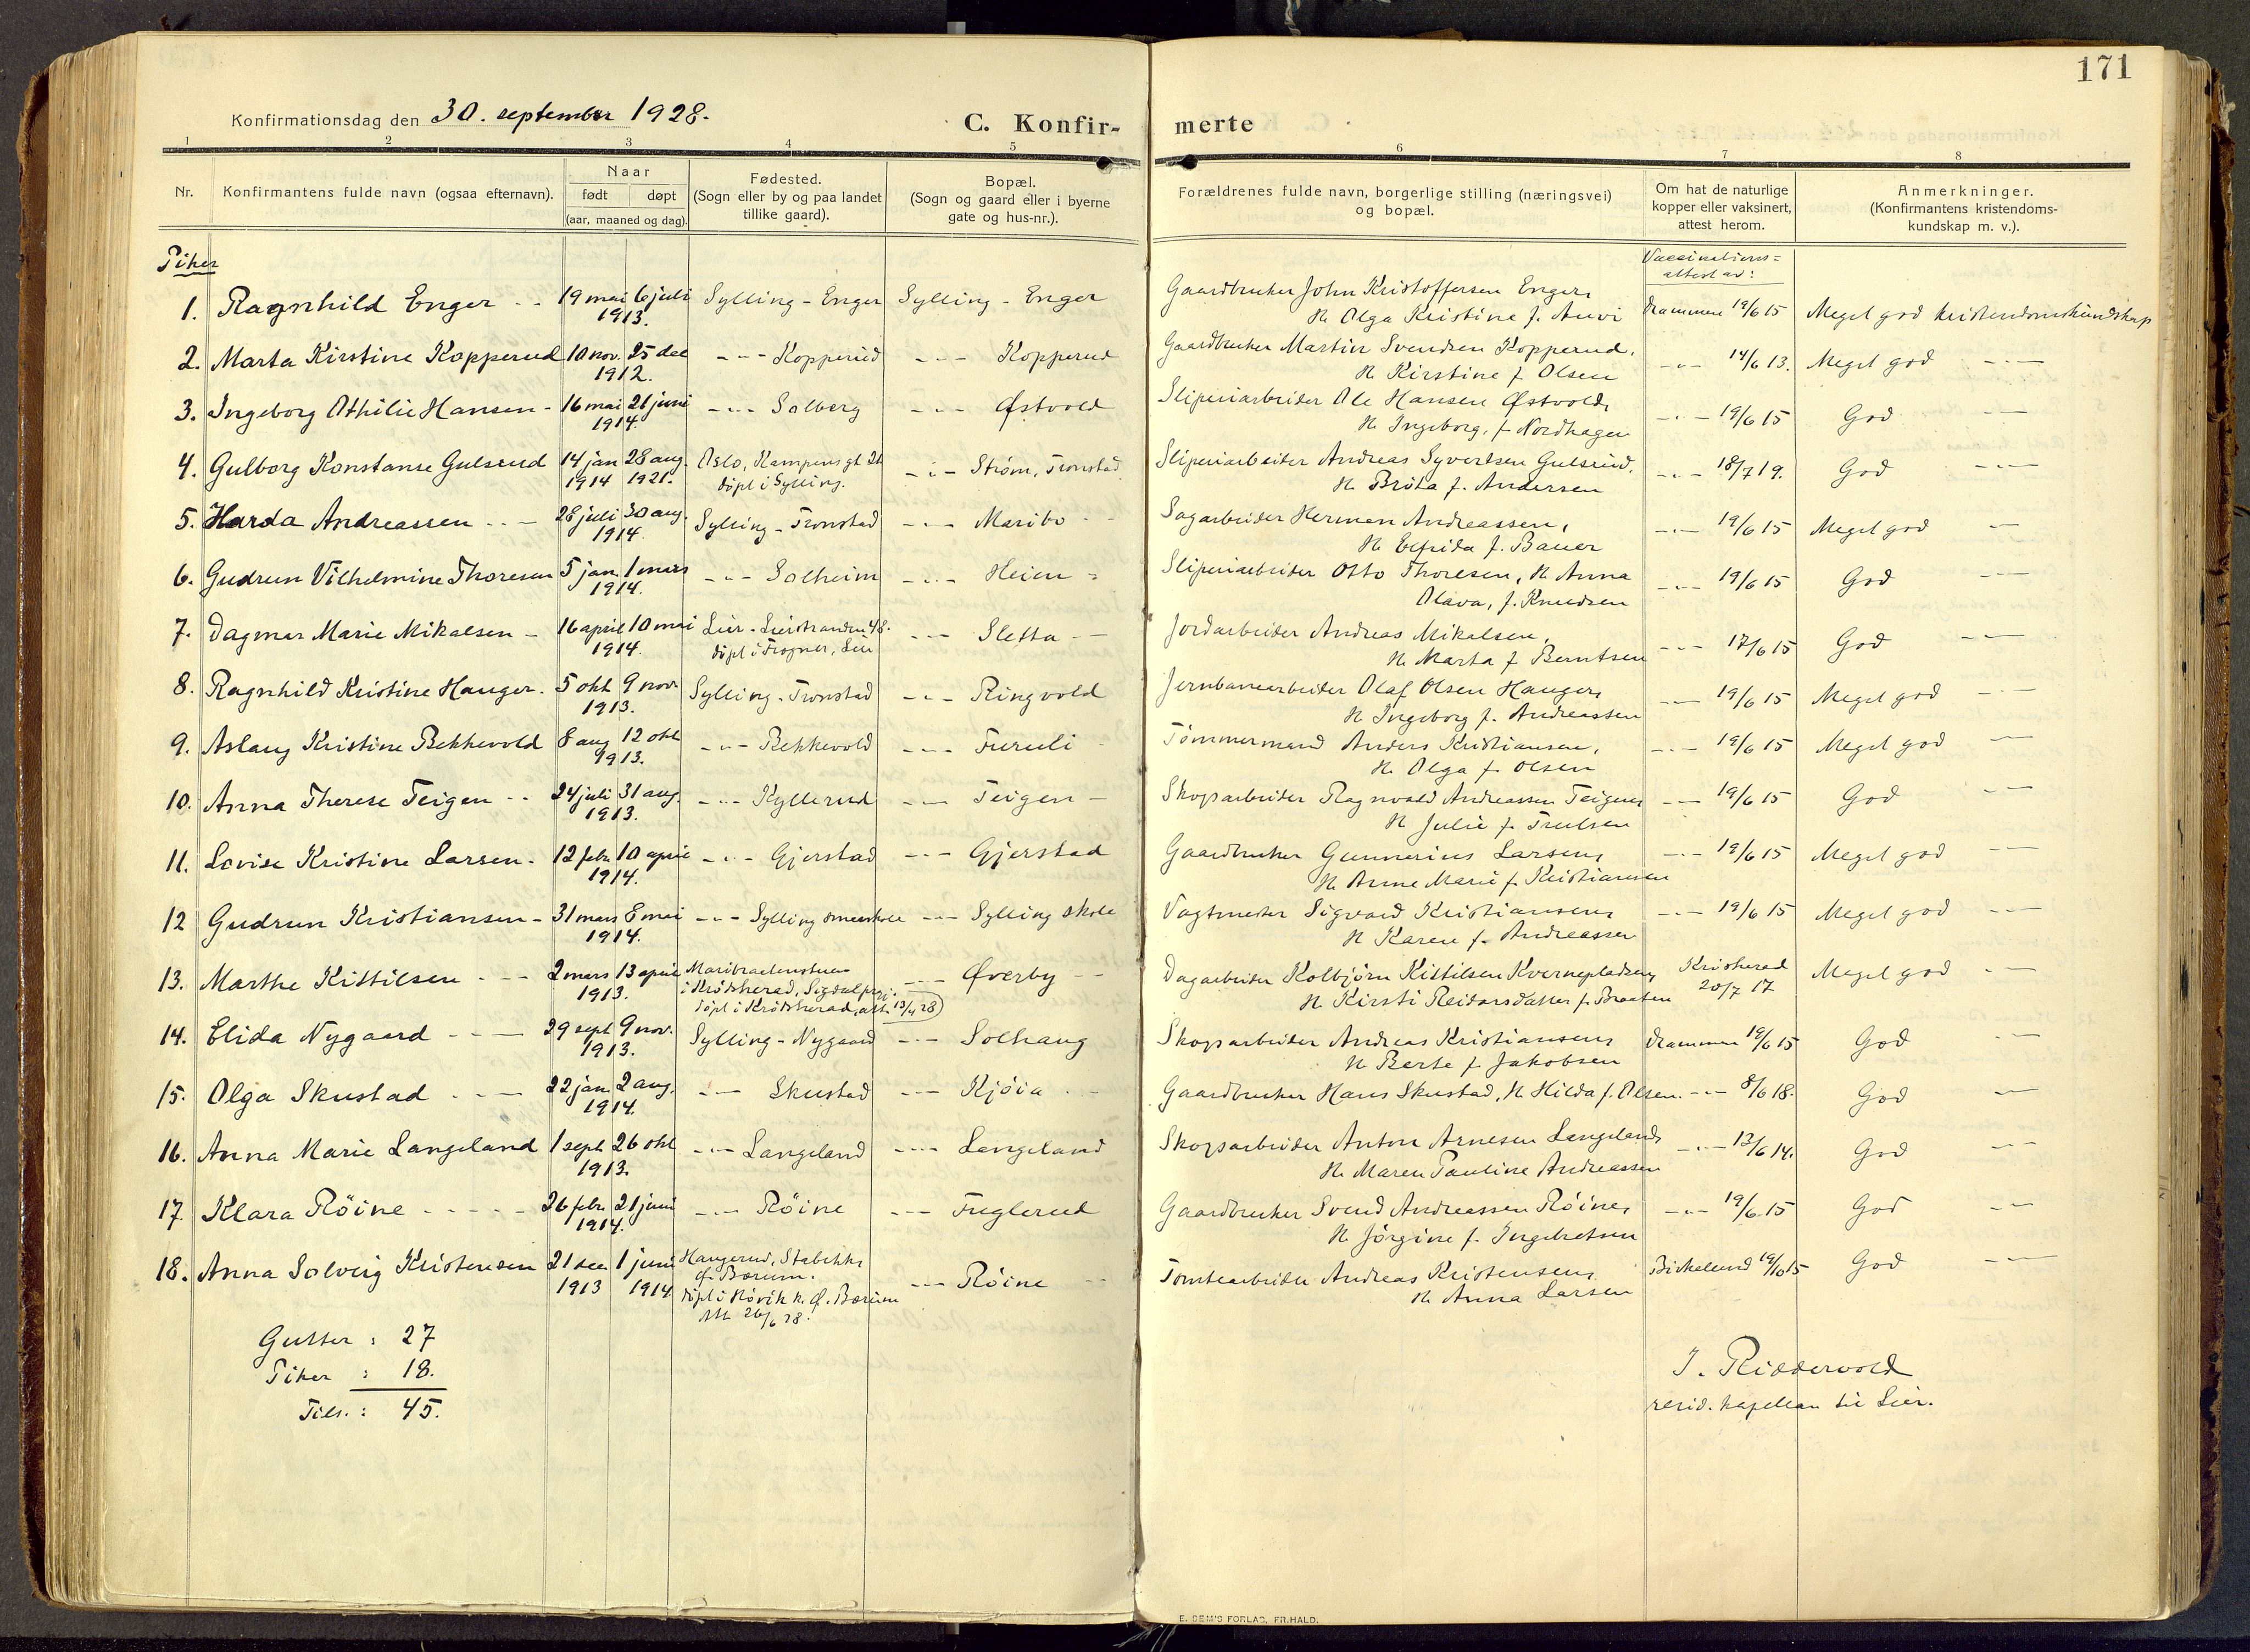 171
Konfirmationsdag den 30. september 1928.
C. Konfir-
merte
1 2 3 4 5 6 7 8
Nr.
Konfirmantens fulde navn (ogsaa efternavn).
Naar
født døpt
(aar, maaned og dag).
Fødested.
(Sogn eller by og paa landet
tillike gaard).
Bopæl.
(Sogn og gaard eller i byerne
gate og hus-nr.).
Forældrenes fulde navn, borgerlige stilling (næringsvei)
og bopæl.
Om hat de naturlige
kopper eller vaksinert,
attest herom.
Anmerkninger.
(Konfirmantens kristendoms-
kundskap m. v.).
Piker
Vaccinations=
attest av:
1. Ragnhild Enger - - 19 mai 6 juli Sylling - Enger Sylling - Enger Gaardbruker John Kristoffersen Enger,
1913. H. Olga Kristine f. Drammen 19/6 15 Meget god kristendomskundskap
2. Marta Kirstine Kopperud 10 nov. 25 dec -"- Kopperud -"- Kopperud Gaardbruker Martin Svendsen Kopperud,
1912. H. Kirstine f. Olsen -"- 14/6 13. Meget god -"-
3. Ingeborg Othilie Hansen - 16 mai 21 juni -"- Solberg -"- Østvold Sliperiarbeider Ole Hansen Østvold,
1914. H. Ingeborg, f. Nordhagen -"- 19/6 15 God -"-
4. Gulborg Konstanse Gulsrud 14 jan 28 aug. Oslo, Kampens gt 21 -"- Strøm, Tronstad Sliperiarbeider Andreas Syvertsen Gulsrud,
1914 1921. døpt i Sylling. H. Brita f. Andersen -"- 18/7 19. God -"-
5. Harda Andreassen - - - 28 juli 30 aug. Sylling - Tronstad -"- Maribo - - Sagarbeider Herman Andreassen,
1914. H. Elfrida f. Bauer -"- 19/6 15 Meget god -"-
6. Gudrun Vilhelmine Thoresen 5 jan 1 mars -"- Solheim -"- Heien - Sliperiarbeider Otto Thoresen, H. Anna
1914. Olava, f. Knudsen -"- 19/6 15 God -"-
7. Dagmar Marie Mikalsen - 16 april 10 mai Lier - Lierstranden 48. -"- Sletta - - Jordarbeider Andreas Mikalsen,
1914. døpt i Frogner, Lier H. Marta f. Berntsen -"- 17/6 15 God -"-
8. Ragnhild Kristine Hauger. 5 okt 9 nov. Sylling - Tronstad -"- Ringvold Jernbanearbeider Olaf Olsen Hauger,
1913. H. Ingeborg f. Andreassen -"- 19/6 15 Meget god -"-
9. Aslaug Kristine Bekkevold 8 aug 12 okt -"- Bekkevold -"- Furuli - Tømmermand Anders Kristiansen,
1913. H. Olga f. Olsen -"- 19/6 15 Meget god -"-
10. Anna Therese Teigen - - 24 juli 31 aug. -"- Kyllerud -"- Teigen - Skogsarbeider Ragnvald Andreassen Teigen,
1913. H. Julie f. Trulsen -"- 19/6 15 God -"-
11. Lovise Kristine Larsen - 12 febr. 10 april -"- Gjerstad -"- Gjerstad Gaardbruker Gunnerius Larsen,
1914. H. Anne Marie f. Kristiansen -"- 19/6 15 Meget god -"-
12 Gudrun Kristiansen - 31 mars 8 mai -"- Sylling smaaskole -"- Sylling skole Vagtmester Sigvard Kristiansen,
1914. H. Karen f. Andreassen -"- 19/6 15 Meget god -"-
13. Marthe Kittilsen - - - 2 mars 13 april Maribraatenstuen -"- Øverby - - Dagarbeider Kolbjørn Kittilsen Kvernepladsen, Krødsherad Meget god -"-
1913. i Krødsherad, Sigdal prgj. H. Kirsti Reidarsdatter f. Braaten 20/7 17
døpt i Krødsherad, att. 13/4 28
14. Elida Nygaard - - - 29 sept 9 nov. Sylling - Nygaard -"- Solhaug Skogsarbeider Andreas Kristiansen, Drammen 19/6 15 God -"-
1913. H. Berte f. Jakobsen
15. Olga Skustad - - - 22 jan. 2 aug. -"- Skustad -"- Kjøia - - Gaardbruker Hans Skustad, H. Hilda f. Olsen. -"- 8/6 18. God -"-
1914.
16. Anna Marie Langeland 1 sept 26 okt -"- Langeland -"- Langeland Skogsarbeider Anton Arnesen Langeland,
1913. H. Maren Pauline Andreassen -"- 13/6 14. God -"-
17 Klara Røine - - - - - 26 febr. 21 juni -"- Røine -"- Fuglerud Gaardbruker Svend Andreassen Røine,
1914. H. Jørgine f. Ingebretsen -"- 19/6 15 God -"-
18. Anna Solveig Kristensen 21 dec 1 juni Haugerud, Stabekk, -"- Røine - - Tomtearbeider Andreas Kristensen, Birkelund 19/10 15 God -"-
1913 1914 Ø. Bærum. H. Anna Larsen
døpt i Høvik k. Ø. Bærum
Att. 26/6 28.
Gutter : 27
Piker : 18.
Tils. : 45.
J. Ridderwold
resid. kapellan til Lier.
E. SEM'S FORLAG, FR.HALD.